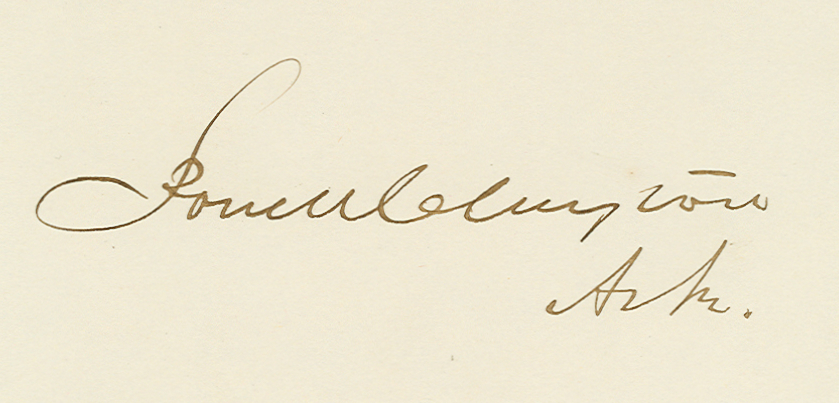 Powell Clayton
Ark.